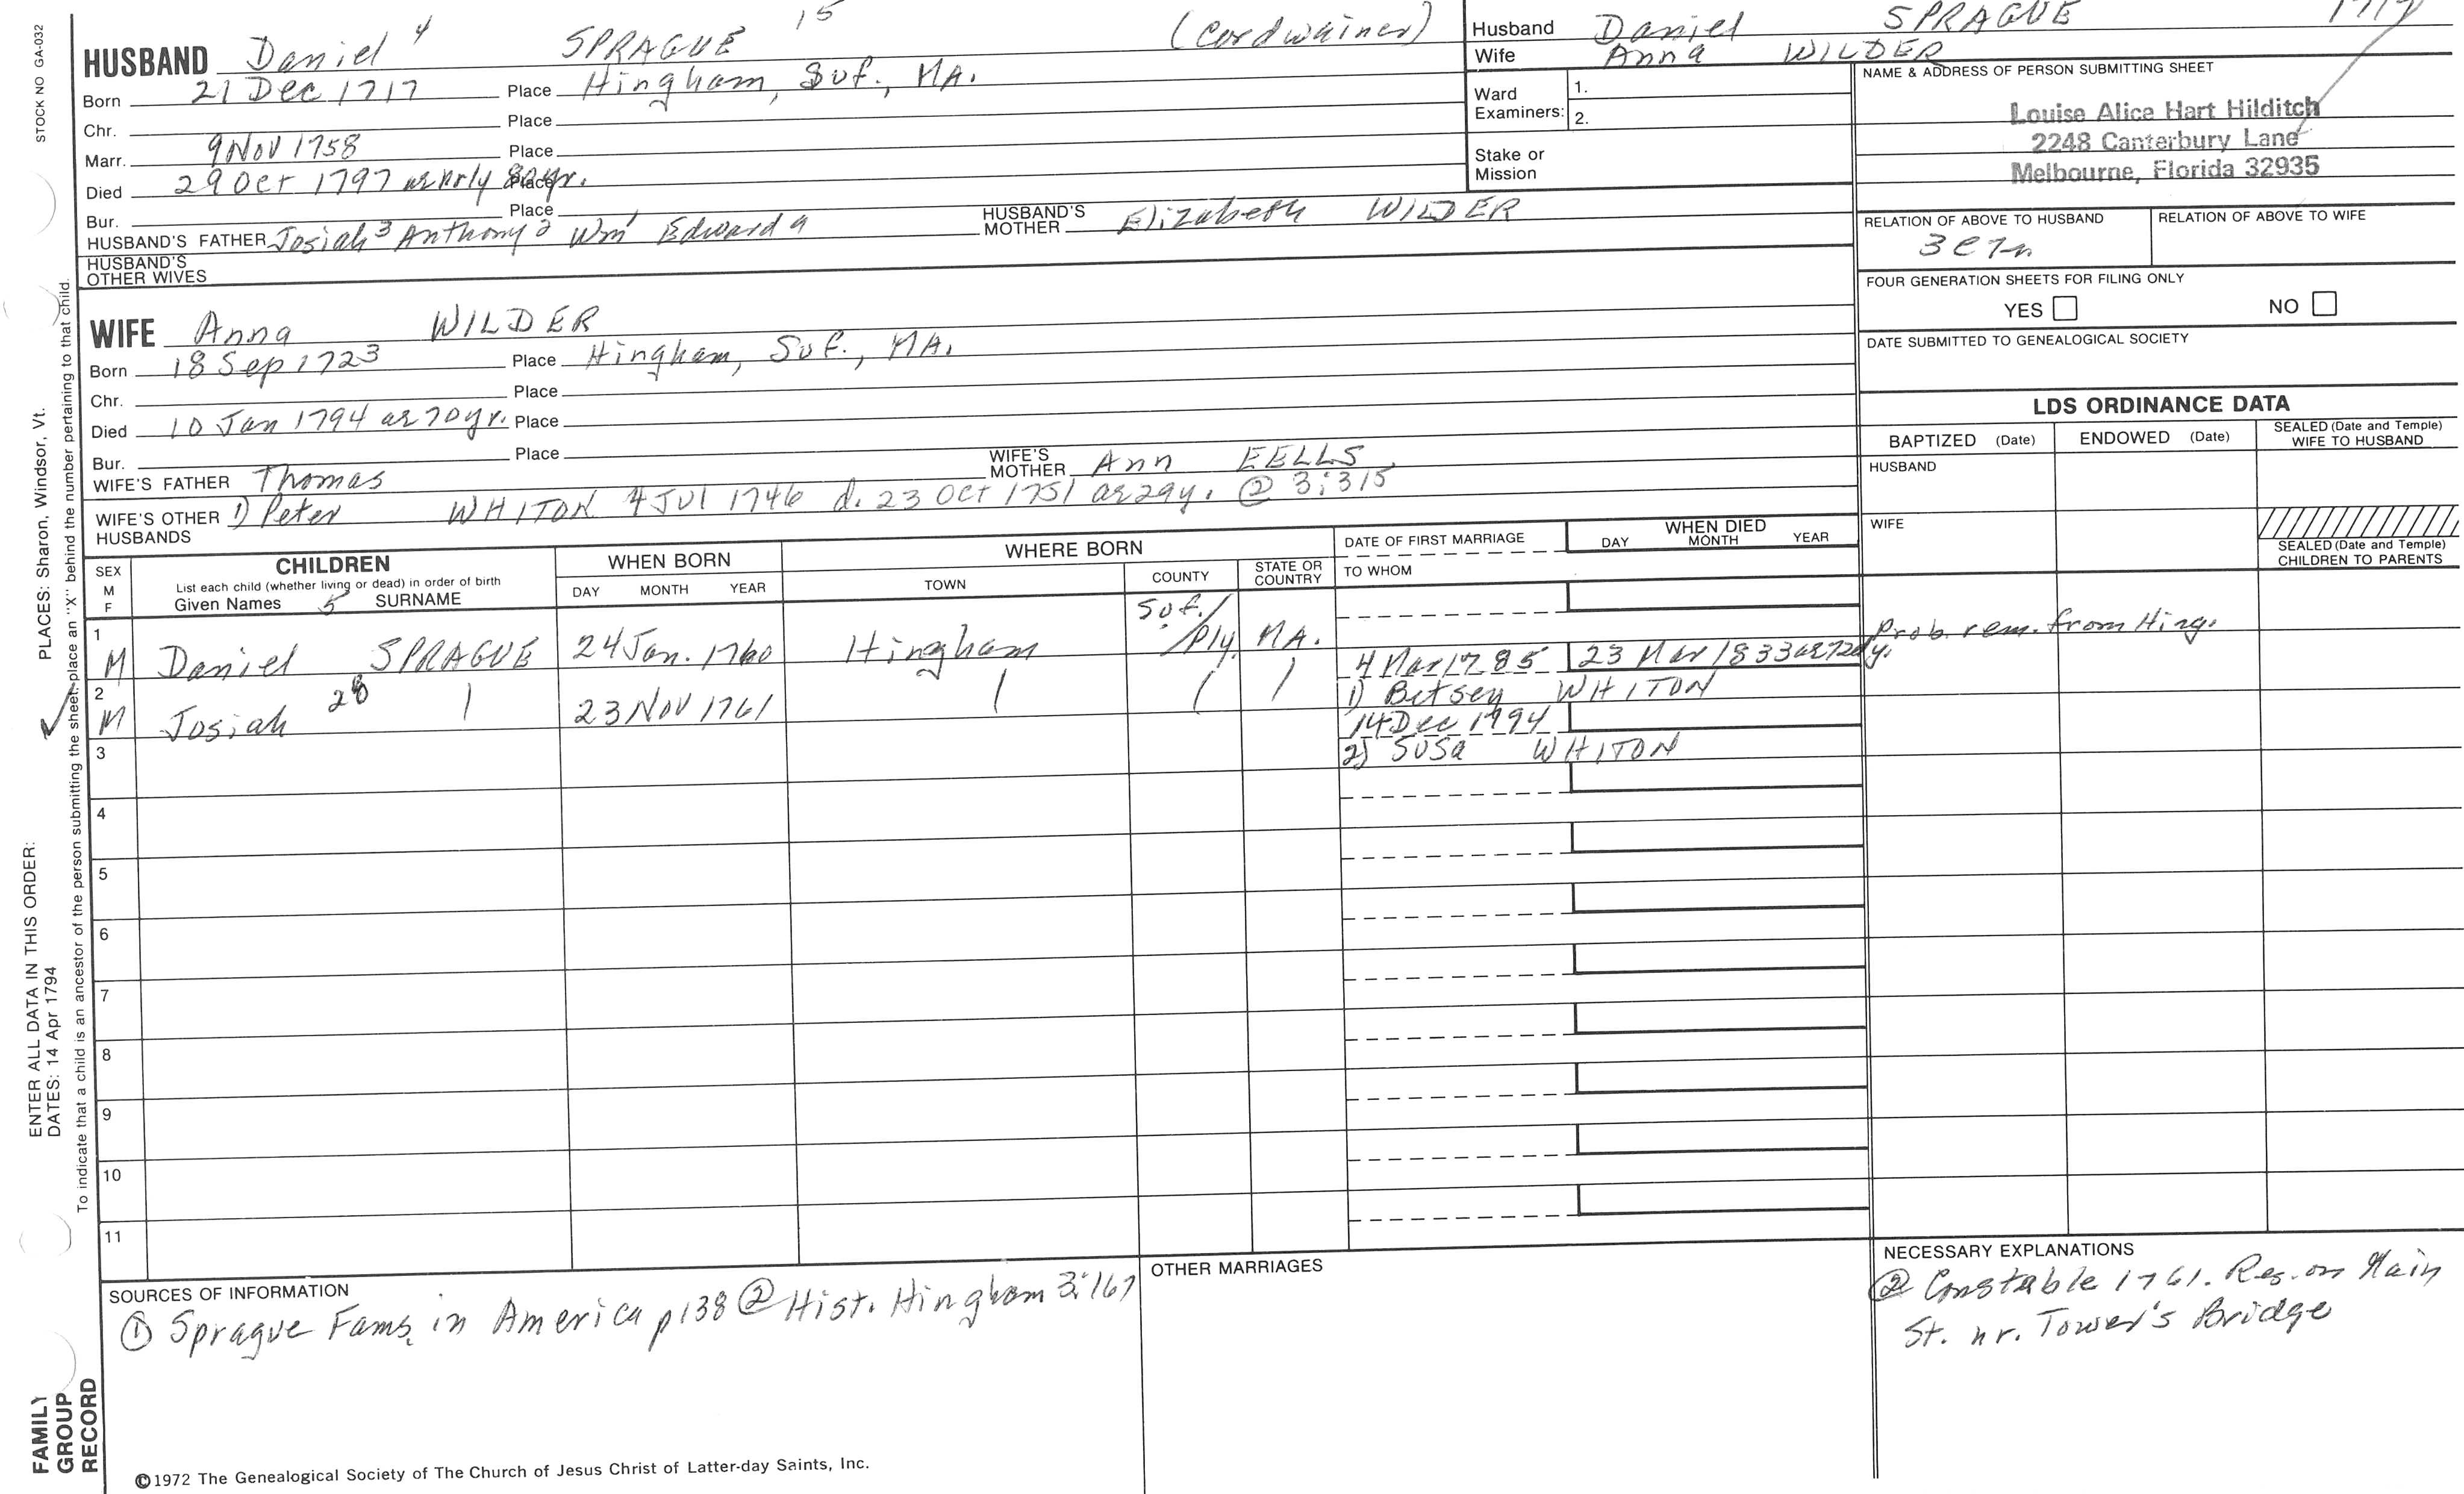 STOCK NO GA-032
HUSBAND Daniel 4 SPRAGUE 15 (Cordwainer)
Born 21 Dec 1717 Place Hingham, Suf., MA.
Chr. Place
Marr. 9 Nov 1758 Place
Died 29 Oct 1797 ae nrly 80 yr. Place
Bur. Place
HUSBAND'S FATHER Josiah 3 Anthony 2 Wm 1 Edward a HUSBAND'S MOTHER Elizabeth WILDER
HUSBAND'S OTHER WIVES
WIFE Anna WILDER
Born 18 Sep 1723 Place Hingham, Suf., MA.
Chr. Place
Died 10 Jan 1794 ae 70 yr. Place
Bur. Place
WIFE'S FATHER Thomas WIFE'S MOTHER Ann EELLS
WIFE'S OTHER HUSBANDS 1) Peter WHITON 4 JUl 1746 d. 23 Oct 1751 ae 29y. ② 3:315
Husband Daniel SPRAGUE 1717
Wife Anna WILDER
Ward Examiners: 1.
2.
Stake or Mission
NAME & ADDRESS OF PERSON SUBMITTING SHEET
Louise Alice Hart Hilditch
2248 Canterbury Lane
Melbourne, Florida 32935
RELATION OF ABOVE TO HUSBAND RELATION OF ABOVE TO WIFE
FOUR GENERATION SHEETS FOR FILING ONLY
YES NO
DATE SUBMITTED TO GENEALOGICAL SOCIETY
LDS ORDINANCE DATA
BAPTIZED (Date) ENDOWED (Date) SEALED (Date and Temple) WIFE TO HUSBAND
HUSBAND
WIFE
SEALED (Date and Temple) CHILDREN TO PARENTS
SEX M F
CHILDREN
List each child (whether living or dead) in order of birth
Given Names 5 SURNAME
WHEN BORN
DAY MONTH YEAR
WHERE BORN
TOWN COUNTY STATE OR COUNTRY
DATE OF FIRST MARRIAGE
TO WHOM
WHEN DIED
DAY MONTH YEAR
1 M Daniel SPRAGUE 24 Jan. 1760 Hingham Suf./Ply. MA. Prob. rem. from Hing.
2 M Josiah 28 | 23 Nov 1761 | | | 4 Mar 1785 23 Mar 1833 ae 72y.
1) Betsey WHITON
3 14 Dec 1794
2) Susa WHITON
4
5
6
7
8
9
10
11
SOURCES OF INFORMATION
① Sprague Fams. in America p138 ② Hist. Hingham 3:167
OTHER MARRIAGES
NECESSARY EXPLANATIONS
② Constable 1761. Res. on Main
St. nr. Tower's Bridge
©1972 The Genealogical Society of The Church of Jesus Christ of Latter-day Saints, Inc.
ENTER ALL DATA IN THIS ORDER: PLACES: Sharon, Windsor, Vt.
DATES: 14 Apr 1794
To indicate that a child is an ancestor of the person submitting the sheet, place an "X" behind the number pertaining to that child.
FAMILY
GROUP
RECORD